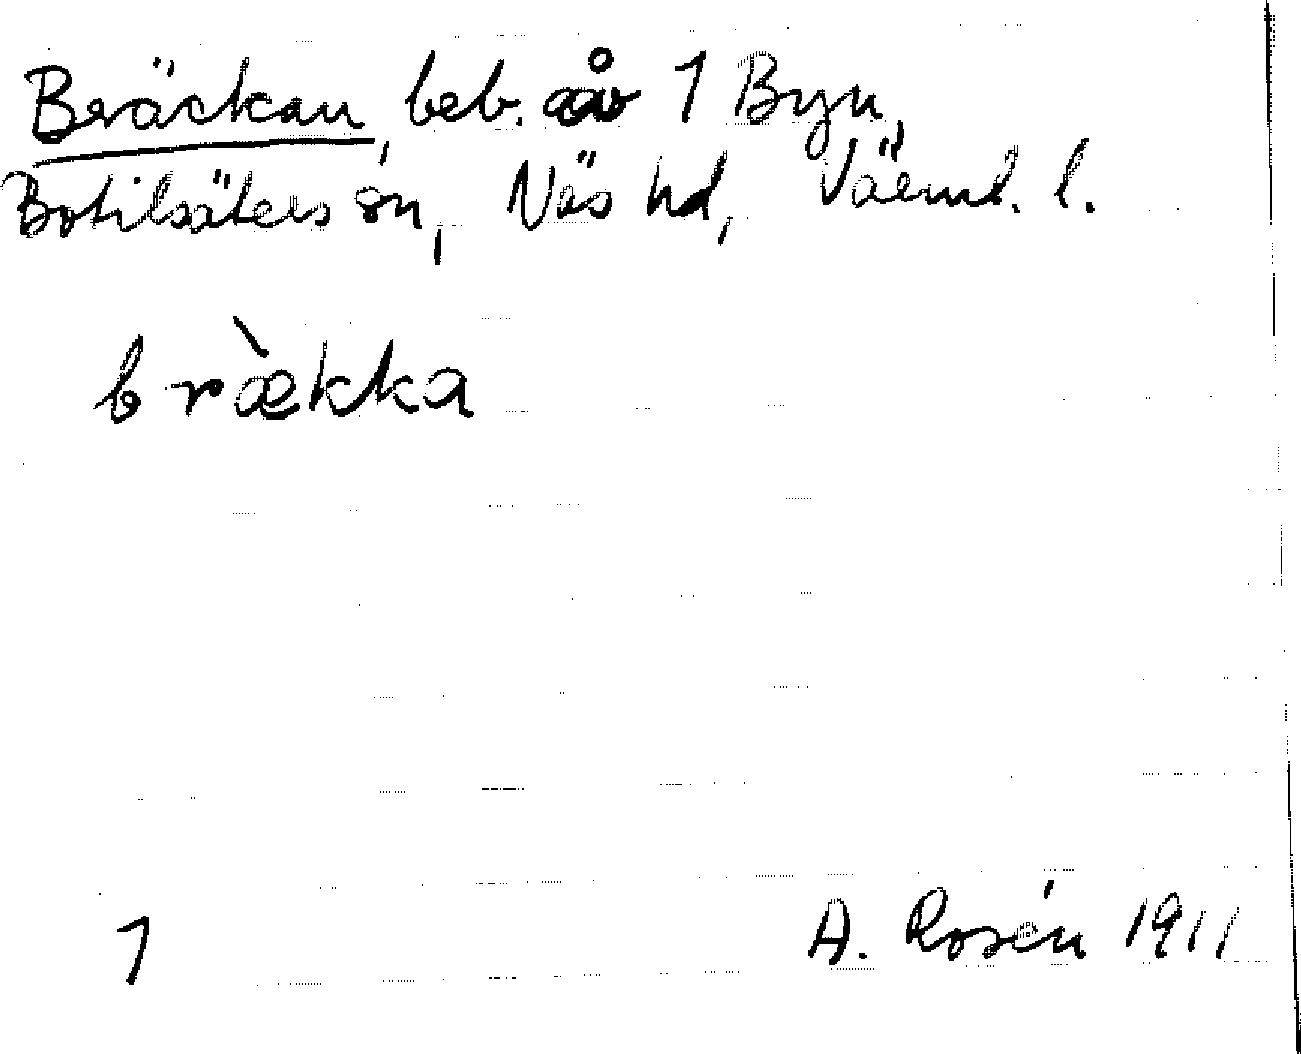 Bräckan, beb. å 1 Byn,
Botilsäters sn, Näs hd, Värml. l.
bræ̀kka
1 A. Rosén 1911